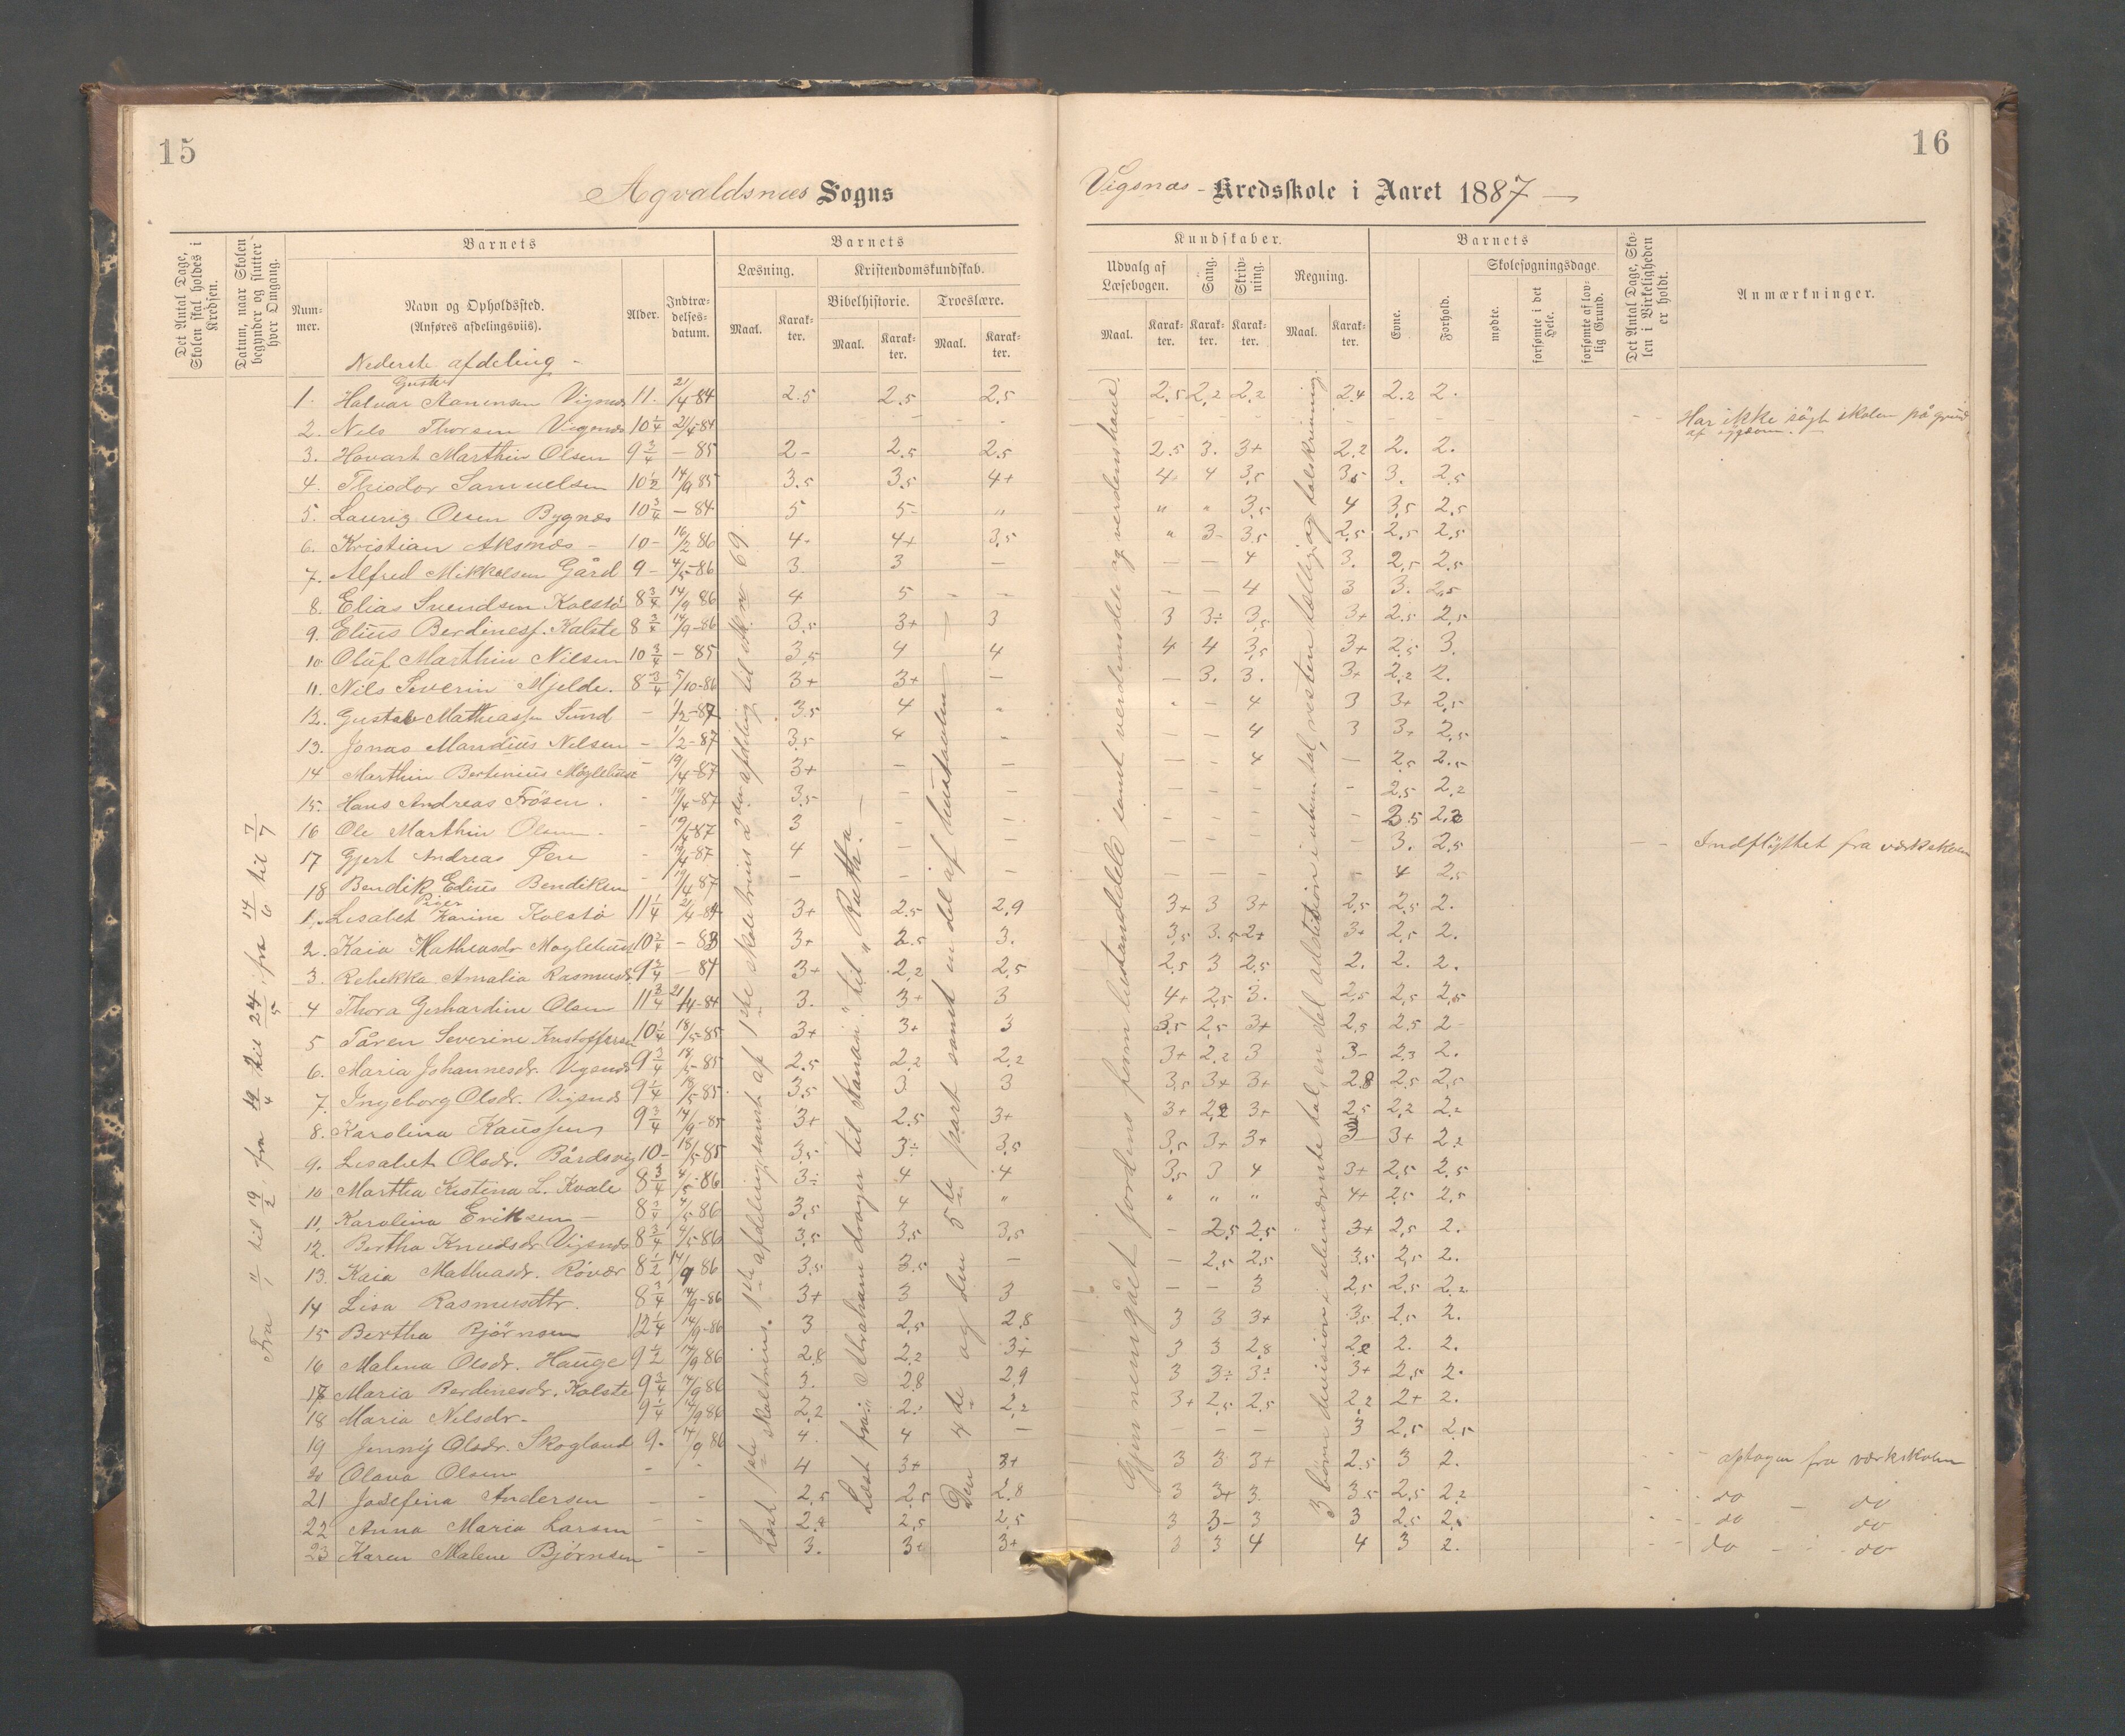 15
Agvaldsnæs Sogns
Det Antal Dage, Skolen skal holdes i Kredsen.
Datum, naar Skolen begynder og slutter hver Omgang.
Barnets
Nummer.
Navn og Opholdssted.
(Anføres afdelingsviis).
Alder.
Indtrædelsesdatum.
Barnets
Læsning.
Maal.
Karakter.
Kristendomskundskab.
Bibelhistorie.
Maal.
Karakter.
Troeslære.
Maal.
Karakter.
Nederste afdeling -
1. Halvar Gustav Aanensen Vignæs 11. 21/4-84 2.5 2.5 2.5
2. Nils Thorsen Vigsnæs 10 1/4 21/4-84 - -
3. Hovart Marthin Olsen 9 3/4 - 85 2- 2.5 2.5
4. Theodor Samuelsen 10 1/2 14/9 85 3.5 3.5 4+
5. Laurig Olsen Bygnæs 10 3/4 - 84 5 5- "
6. Kristian Aksnæs - 10- 16/2 86 4- 4+ 3.5
7. Alfred Mikkelsen Gård 9- 4/5-86 3 3 -
8. Elias Svendsen Kolstø 8 3/4 14/9 86 4 5 - -
9. Elius Berdinesf. Kolstø 8 3/4 14/9-86 3.5 3+ 3
10. Oluf Marthin Nilsen 10 3/4 - 85 3.5 4 4
11. Nils Severin Mjelde. 8 3/4 5/10-86 3+ 3+ -
12. Gustav Mathiassen Sund - 1/2-87 3.5 4 -
13. Jonas Mandius Nilsen - 1/2-87 3.5 4 -
14 Marthin Bertinius - 19/4-87 3+ - -
15. Hans Andreas Frösen. - 19/4-87 3.5 - -
16 Ole Marthin Olsen - - 19/4-87 3 - -
17 Gjert Andreas Øen - 19/4-87 4 - -
18 Bendik Edius Bendiksen - 19/4 87 - - -
Piger
1. Lisabet Karine Kolstö 11 1/4 21/4-84 3+ 2.5 2.9
2. Kaia Mathiasdr 10 2/4 - 83 3+ 2.5 3.
3. Rebekka Amalia Rasmusdr 9 3/4 - 84 3+ 2.2 2.5
4 Thora Gerhardine Olsen 11 3/4 21/4-84 3. 3+ 3
5 Tåren Severine Kristoffersen 10 1/4 18/5-85 3+ 3+ 3
6. Maria Johannesdr. Vigsnæs 9 3/4 18/5 85 2.5 2.2 2.2
7. Ingeborg Olsdr. Vigsnæs 9 1/4 18/5-85 3.5 3 3
8. Karolina 9 3/4 14/9-85 3+ 2.5 3+
9. Lisabet Olsdr. Bårdsvig 10- 18/5-85 3.5 3÷ 3.5
10 Martha Kistina L. Kvale 8 3/4 4/5-86 3÷ 4 4
11. Karolina Eriksen - 8 3/4 4/5-86 3.5 4 "
12. Bertha Knudsdr Vigsnæs 8 3/4 4/5-86 3.5 3.5 3.5
13. Kaia Mathiasdr. Røvær 8 1/2 14/9 86 3.5 3.5 -
14 Lisa Rasmusdtr. 8 3/4 14/9-86 3+ 3 3
15 Bertha Bjørnsen 12 1/4 14/9-86 3 2.5 2.8
16 Malena Olsdr. Hauge 9 1/2 14/9 86 2.8 2.2 3+
17 Maria Berdinesdr. Kolstø 9 3/4 14/9 86 3. 2.8 2.9
18 Maria Nilsdr - 9 1/4 14/9 86 2.2 2. 2.2
19 Jenny Olsdr. Skogland 9. 14/9 86 4. 4 -
20 Olava Olsen - - 4 3+ 3+
21 Josefina Andersen - - 2.5 2.5 2.8
22 Anna Maria Larsen - - 2.8 2.5 2.5
23 Karen Malene Bjørnsen - - 3. 3+ 3+
Fra 11/1 til 19/2, fra 19/4 til 24/5, fra 14/6 til 7/7
Læst 1ste skoletrins 1ste afdeling samt af 1ste skoletrins 2den afdeling til stk. nr 69.
Læst fra "Abraham drager til Kanaan" til "Ruth."
Den 4de og den 5te part samt en del af hustavlen
16
Vigsnæs - Kredsskole i Aaret 1887 -
Kundskaber.
Udvalg af Læsebogen.
Maal.
Karakter.
Sang.
Karakter.
Skrivning.
Karakter.
Regning.
Maal.
Karakter.
Barnets
Evne.
Forhold.
Skolesøgningsdage.
mødte.
forsømte i det Hele.
forsømte af lovlig Grund.
Det Antal Dage, Skolen i Virkeligheden er holdt.
Anmærkninger.
2.5 2.2 2.2 2.4 2.2 2.
- - Har ikke sögt skolen på grund af sygdom. -
2.5 3. 3+ 2.2 2. 2.
4 4 3.5 3.5 3. 2.5
" " 3.5 4 3.5 2.5
" 3- 3.5 2.5 2.5 2.5
- - 4 3. 2.5 2.5
- - 4 3 3. 2.5
3 3÷ 3.5 3+ 2.5 2.5
4 4 3.5 3+ 2.5 3.
- 3. 3. 3+ 2.2 2.
- - 4 3 3+ 2.5
- - 4 3 3+ 2.5
- - 4 - 2.5 2.5
- - - - 2.5 2.2
- - - - 3.5 2.2
- - - - 3. 2.5 - - Indflyttet fra værkskolen
- - - - 4 2.5
3+ 3 3+ 2.5 2.5 2.
3.5 3.5 2+ 3+ 2.5 2.
2.5 3 2.5 2. 2. 2.
4+ 2.5 3. 2.5 2.5 2.5
3.5 2.5 3+ 2.5 2.5 2-
3+ 2.2 3 3- 2.3 2.
3.5 3+ 3+ 2.8 2.5 2.5
3+ 2.2 3+ 2.5 2.2 2.2
3.5 3+ 3+ 3 3+ 2.2
3.5 3 4 3+ 2.5 2.5
" " " 4+ 2.5 2.5
- 2.5 2.5 3+ 2.5 2.
- 2.5 2.5 3.5 2.5 2.
- - 3 2.5 2.5 2.2
3 3 3+ 3.5 2.5 2.
3 3 2.8 2.2 2. 2.
3 3÷ 3÷ 3+ 2.5 2.
3+ 2.5 2.5 2.2 2+ 2.
- - - 3 2.5 2.5
3 3 3+ 2.5 3 2. - - optagen fra værkskolen
3 3+ 3. 3.5 2.5 2.2 - - do - do
3 3- 3 3 2.5 2.5 - - do do
3 3 4 4 3 2. - - do - - do
Gjennemgået jordens form bestanddele samt verdensdele og verdenshave.
3 børn division i ubenævnte tal, en del addition i ubenævnte tal, resten tælling og talskrivning.